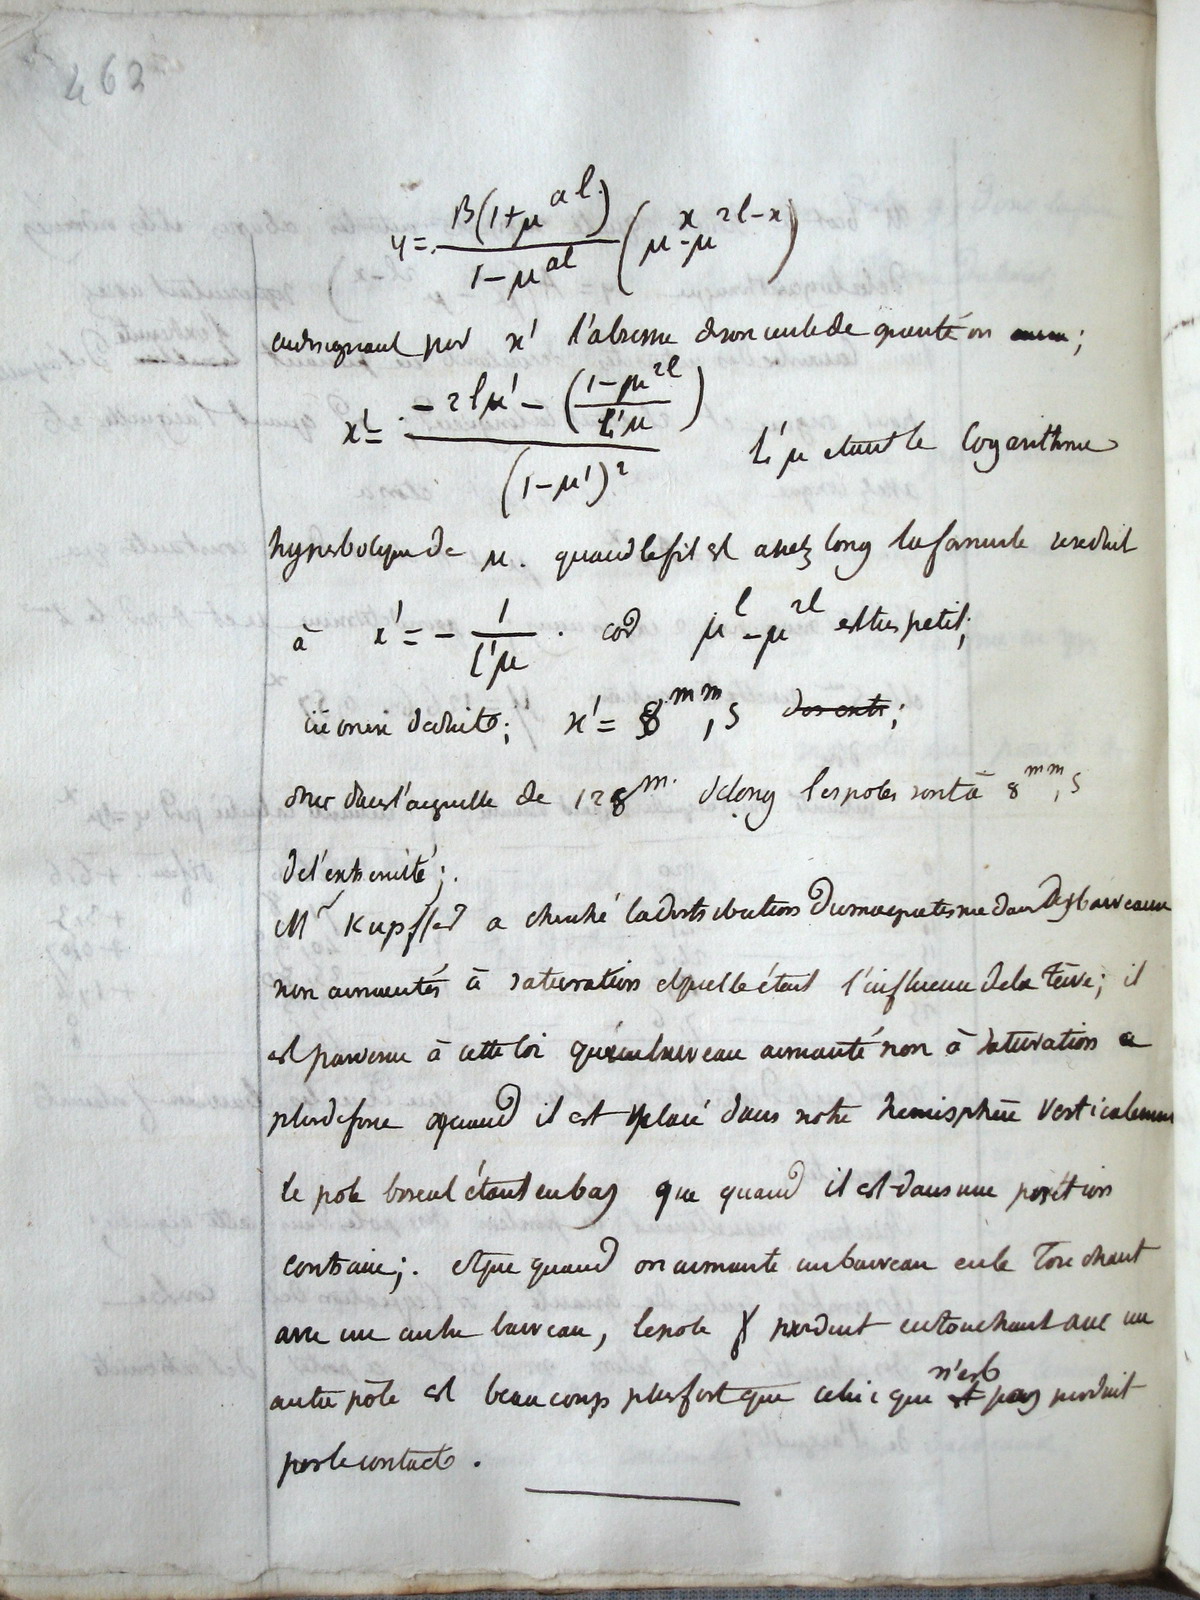 462
y = B(1+μ^{al}) / (1-μ^{al}) (μ^x - μ^{2l-x})
en designant par x' l'abscisse de son centre de gravité on ;
x' = (-2lμ^l - ((1-μ^{2l}) / L'μ)) / (1-μ^l)^2 L'μ etant le logarithme
hyperbolique de μ. quand le fil est assez long la formule se reduit
à x' = - 1/L'μ . car μ^l - μ^{2l} est très petit;
deduite; x' = 8^{mm},5 ;
donc dans l'aiguille de 128^m. de long les poles sont à 8^{mm},5
de l'extremité;.
M^r Kupffer a cherché la distribution du magnetisme dans des barreaux
non aimantés à saturation et quelle était l'influence de la terre; il
est parvenu à cette loi qu'un barreau aimanté non à saturation a
plus de force quand il est placé dans notre hemisphère verticalement
le pole boreal étant en bas que quand il est dans une position
contraire;. et que quand on aimante un barreau en le touchant
avec un autre barreau, le pole produit en touchant avec un
autre pôle est beaucoup plus fort que celui que n'est pas produit
par le contact.